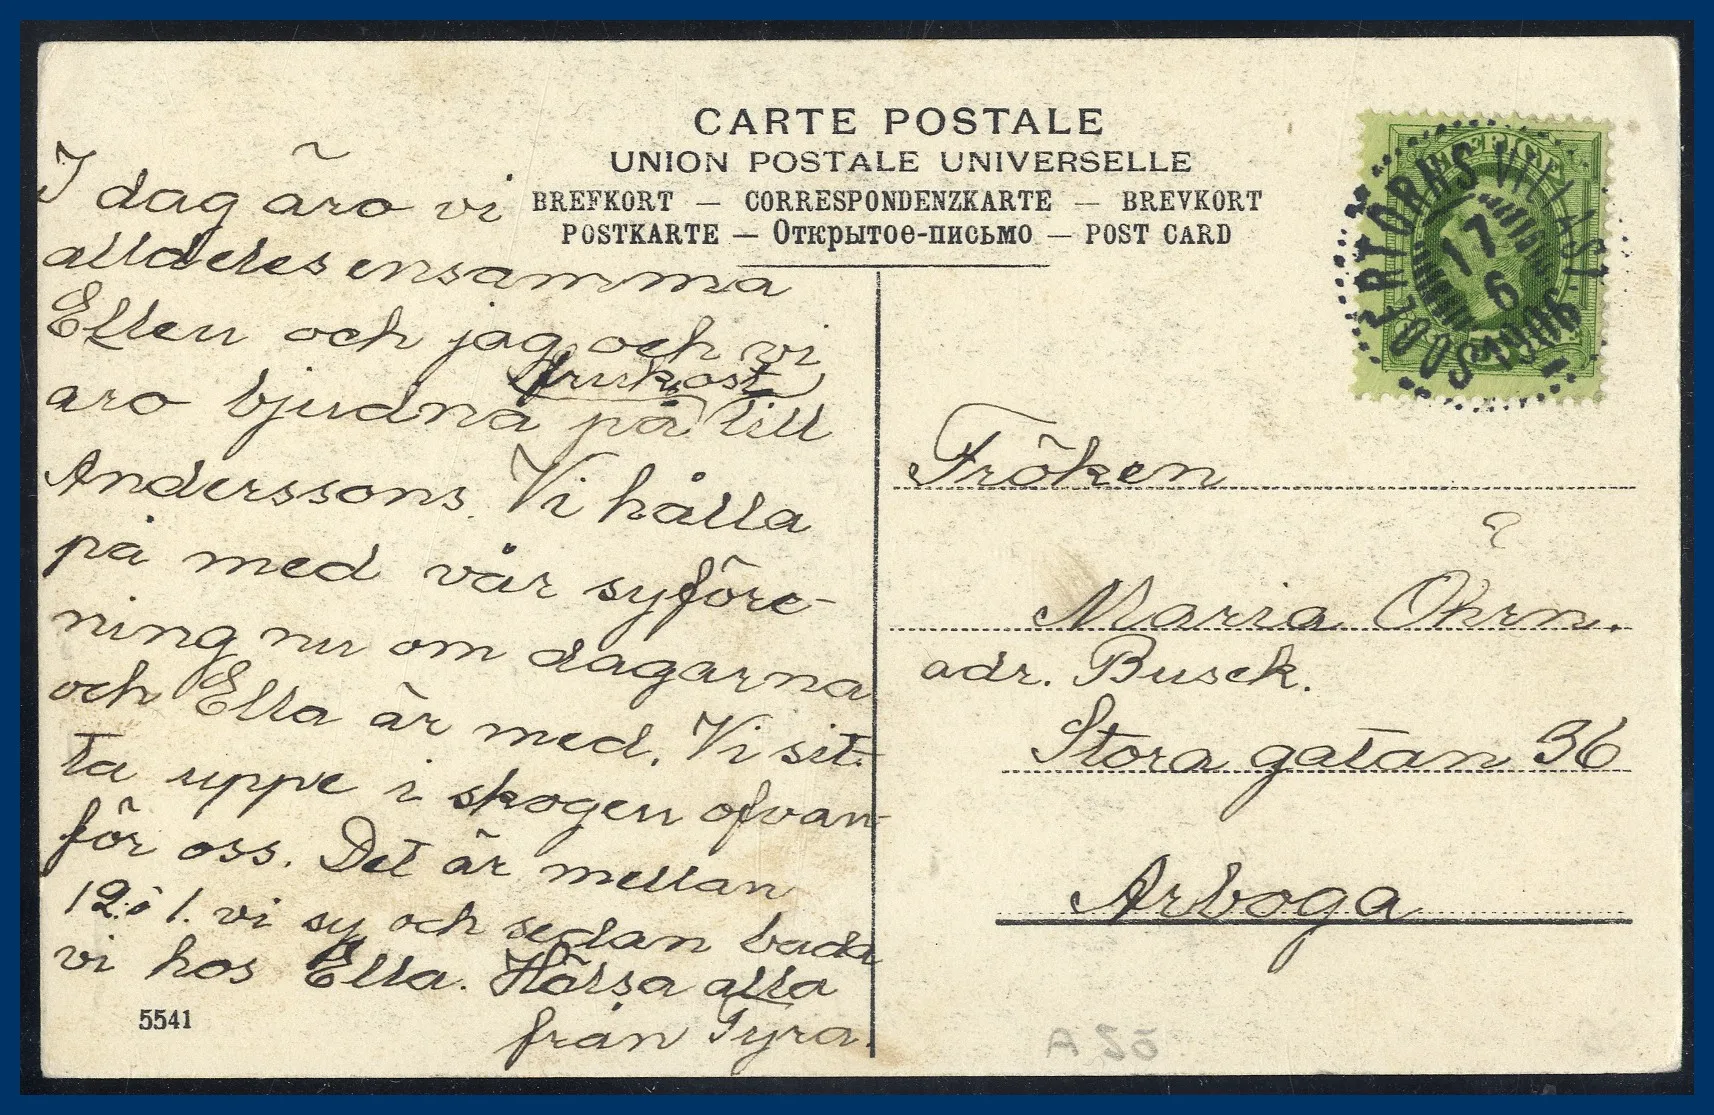 CARTE POSTALE
UNION POSTALE UNIVERSELLE
BREFKORT — CORRESPONDENZKARTE — BREVKORT
POSTKARTE — Открытое-письмо — POST CARD
I dag äro vi
alldeles ensamma
Ellen och jag och vi
frukost
äro bjudna på till
Anderssons. Vi hålla
på med vår syföre-
ning nu om dagarna
och Ella är med. Vi sit-
ta uppe i skogen ofvan-
för oss. Det är mellan
12 i 1. vi sy och sedan bada
vi hos Ella. Hälsa alla
från Tyra.
5541
SÖDERTÖRNS VILLAST.
17
6
1906
Fröken
Maria Öhrn.
adr. Busck.
Stora gatan 36
Arboga